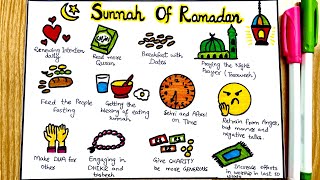 Sunnah Of Ramadan
Renewing Intention
daily
Read more
Quran
Breakfast with
Dates
Praying the Night
Prayer (Taraweeh)
Feed the People
Fasting
Getting the
blessing of eating
suhoor
Sehri and Aftari
on Time
Refrain from Anger,
bad manners and
negative talks.
Make DUA for
others
Engaging in
DHIKR and
tasbeeh
Give CHARITY
be more GENEROUS
Increase efforts
in worship in last 10